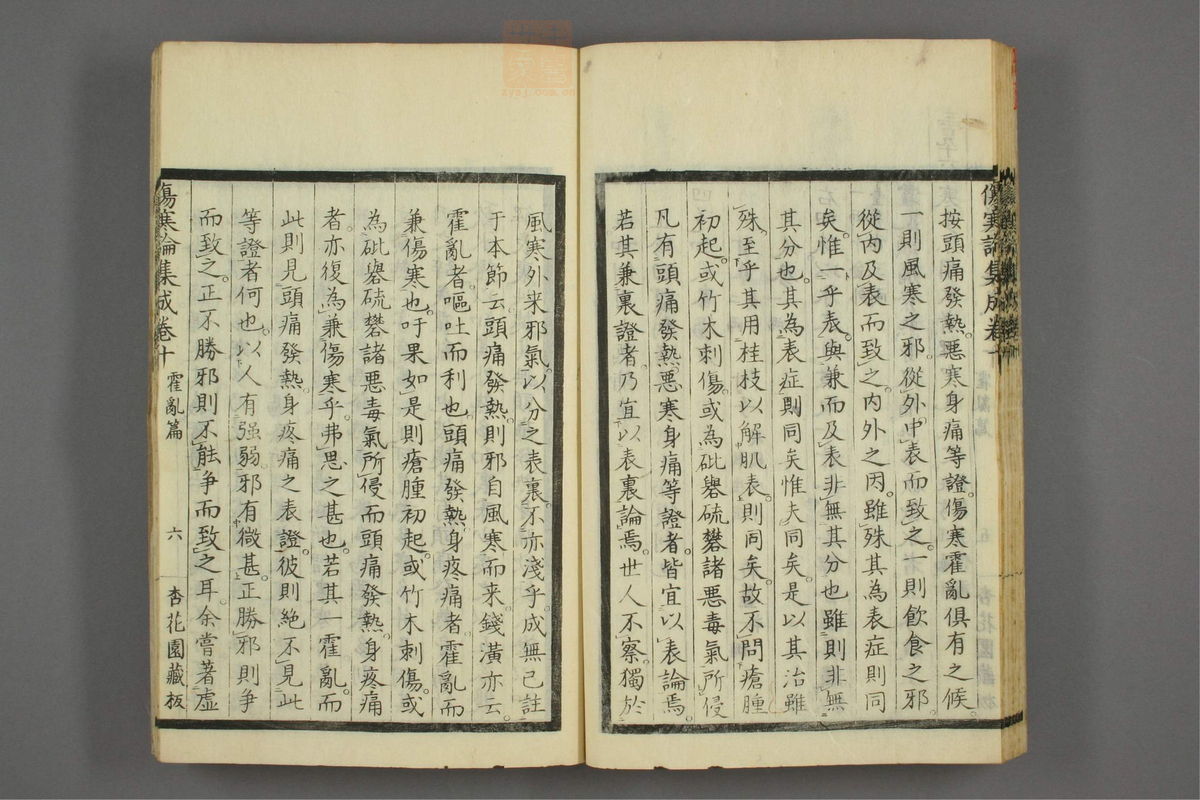 傷寒論集成卷十
按頭痛發熱。惡寒身痛等證。傷寒霍亂俱有之候。
一則風寒之邪。從外。中表而致之。一則飲食之邪
從內及表而致之。內外之因。雖殊其為表症則同
矣。惟一乎表。與兼而及表非無其分也。雖則非無
其分也。其為表症則同矣。惟夫同矣。是以其治雖
殊。至乎其用桂枝以解肌表。則同矣。故不問瘡腫
初起。或竹木刺傷。或為砒礜硫礬諸惡毒氣所侵
凡有頭痛發熱。惡寒身痛等證者。皆宜以表論焉。
若其兼裏證者。乃宜以表裏論焉。世人不察。獨於
風寒外来邪氣。以分之表裏。不亦淺乎。成無已註
于本節云。頭痛發熱。則邪自風寒而来。錢潢亦云。
霍亂者。嘔吐而利也。頭痛發熱。身疼痛者。霍亂而
兼傷寒也。吁果如是則瘡腫初起。或竹木刺傷。或
為砒礜硫礬諸惡毒氣所侵而頭痛發熱。身疼痛
者。亦復為兼傷寒乎。弗思之甚也。若其一霍亂。而
此則見頭痛發熱。身疼痛之表證。彼則絶不見此
等證者何也。以人有强弱。邪有微甚。正勝邪則爭
而致之。正不勝邪則不能爭而致之耳。余嘗著虛
傷寒論集成卷十 霍亂。篇 六 杏花園藏板
zysj.com.cn